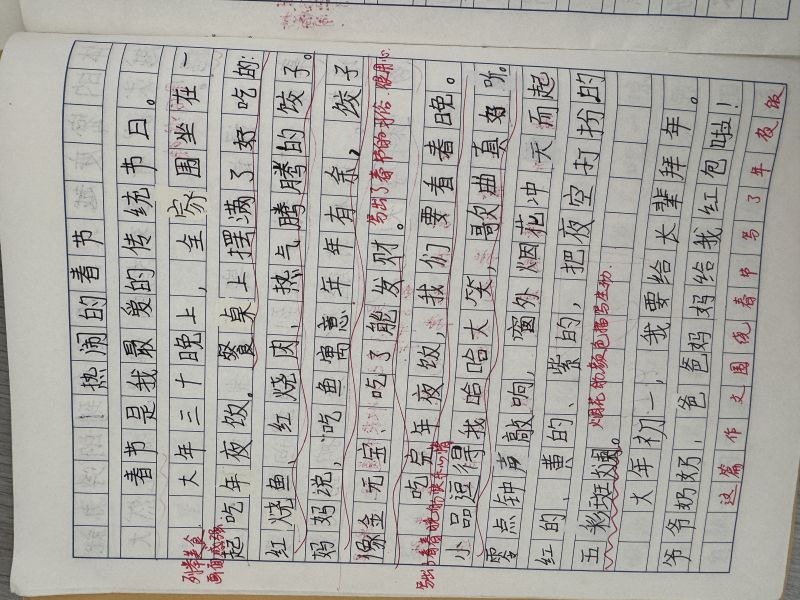 热闹的春节
春节是我最爱的传统节日。
大年三十晚上，全家围坐在一
起吃年夜饭。餐桌上摆满了好吃的：
红烧鱼、红烧肉、热气腾腾的饺子。
妈妈说，吃鱼寓意年年有余，饺子
像金元宝，吃了能发财。
写出了春节的习俗
吃完年夜饭，我们要看春晚。
小品逗得我哈哈大笑，歌曲真好听。
零点钟声敲响，窗外烟花冲天而起
红的、黄的、紫的，把夜空打扮的
五彩斑斓。
烟花的颜色描写生动
大年初一，我要给长辈拜年。
爷爷奶奶，爸爸妈妈给我红包啦！
这篇作文围绕春节写了年夜饭
列举美食
画面感强